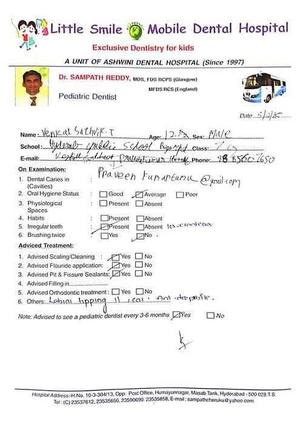 Little Smile Mobile Dental Hospital
Exclusive Dentistry for kids
A UNIT OF ASHWINI DENTAL HOSPITAL (Since 1997)
Dr. SAMPATH REDDY, MDS, FDS RCPS (Glasgow)
MFDS RCS (England)
Pediatric Dentist
Date:
Name: Venkat Sathvik.T Age: 12 Sex: Male
School: Public School Class: 7
E-mail: Phone:
On Examination: Praveen @gmail.com
1. Dental Caries in (Cavities)
2. Oral Hygiene Status : Good Average Poor
3. Physiological Spaces : Present Absent
4. Habits : Present Absent
5. Irregular teeth : Present Absent
6. Brushing twice : Yes No
Adviced Treatment:
1. Advised Scaling/Cleaning : Yes No
2. Advised Flauride application: Yes No
3. Advised Pit & Fissure Sealants: Yes No
4. Advised Filling in
5. Advised Orthodontic treatment : Yes No
6. Others:
Note: Advised to see a pediatric dentist every 3-6 months Yes No
Hospital Address: H.No. 10-3-304/13, Opp. Post Office, Humayunnagar, Masab Tank, Hyderabad - 500 028 T.S.
Tel: (C) 23537612, 23535656, 23590690, 23535858, E-mail: sampathcheruku@yahoo.com